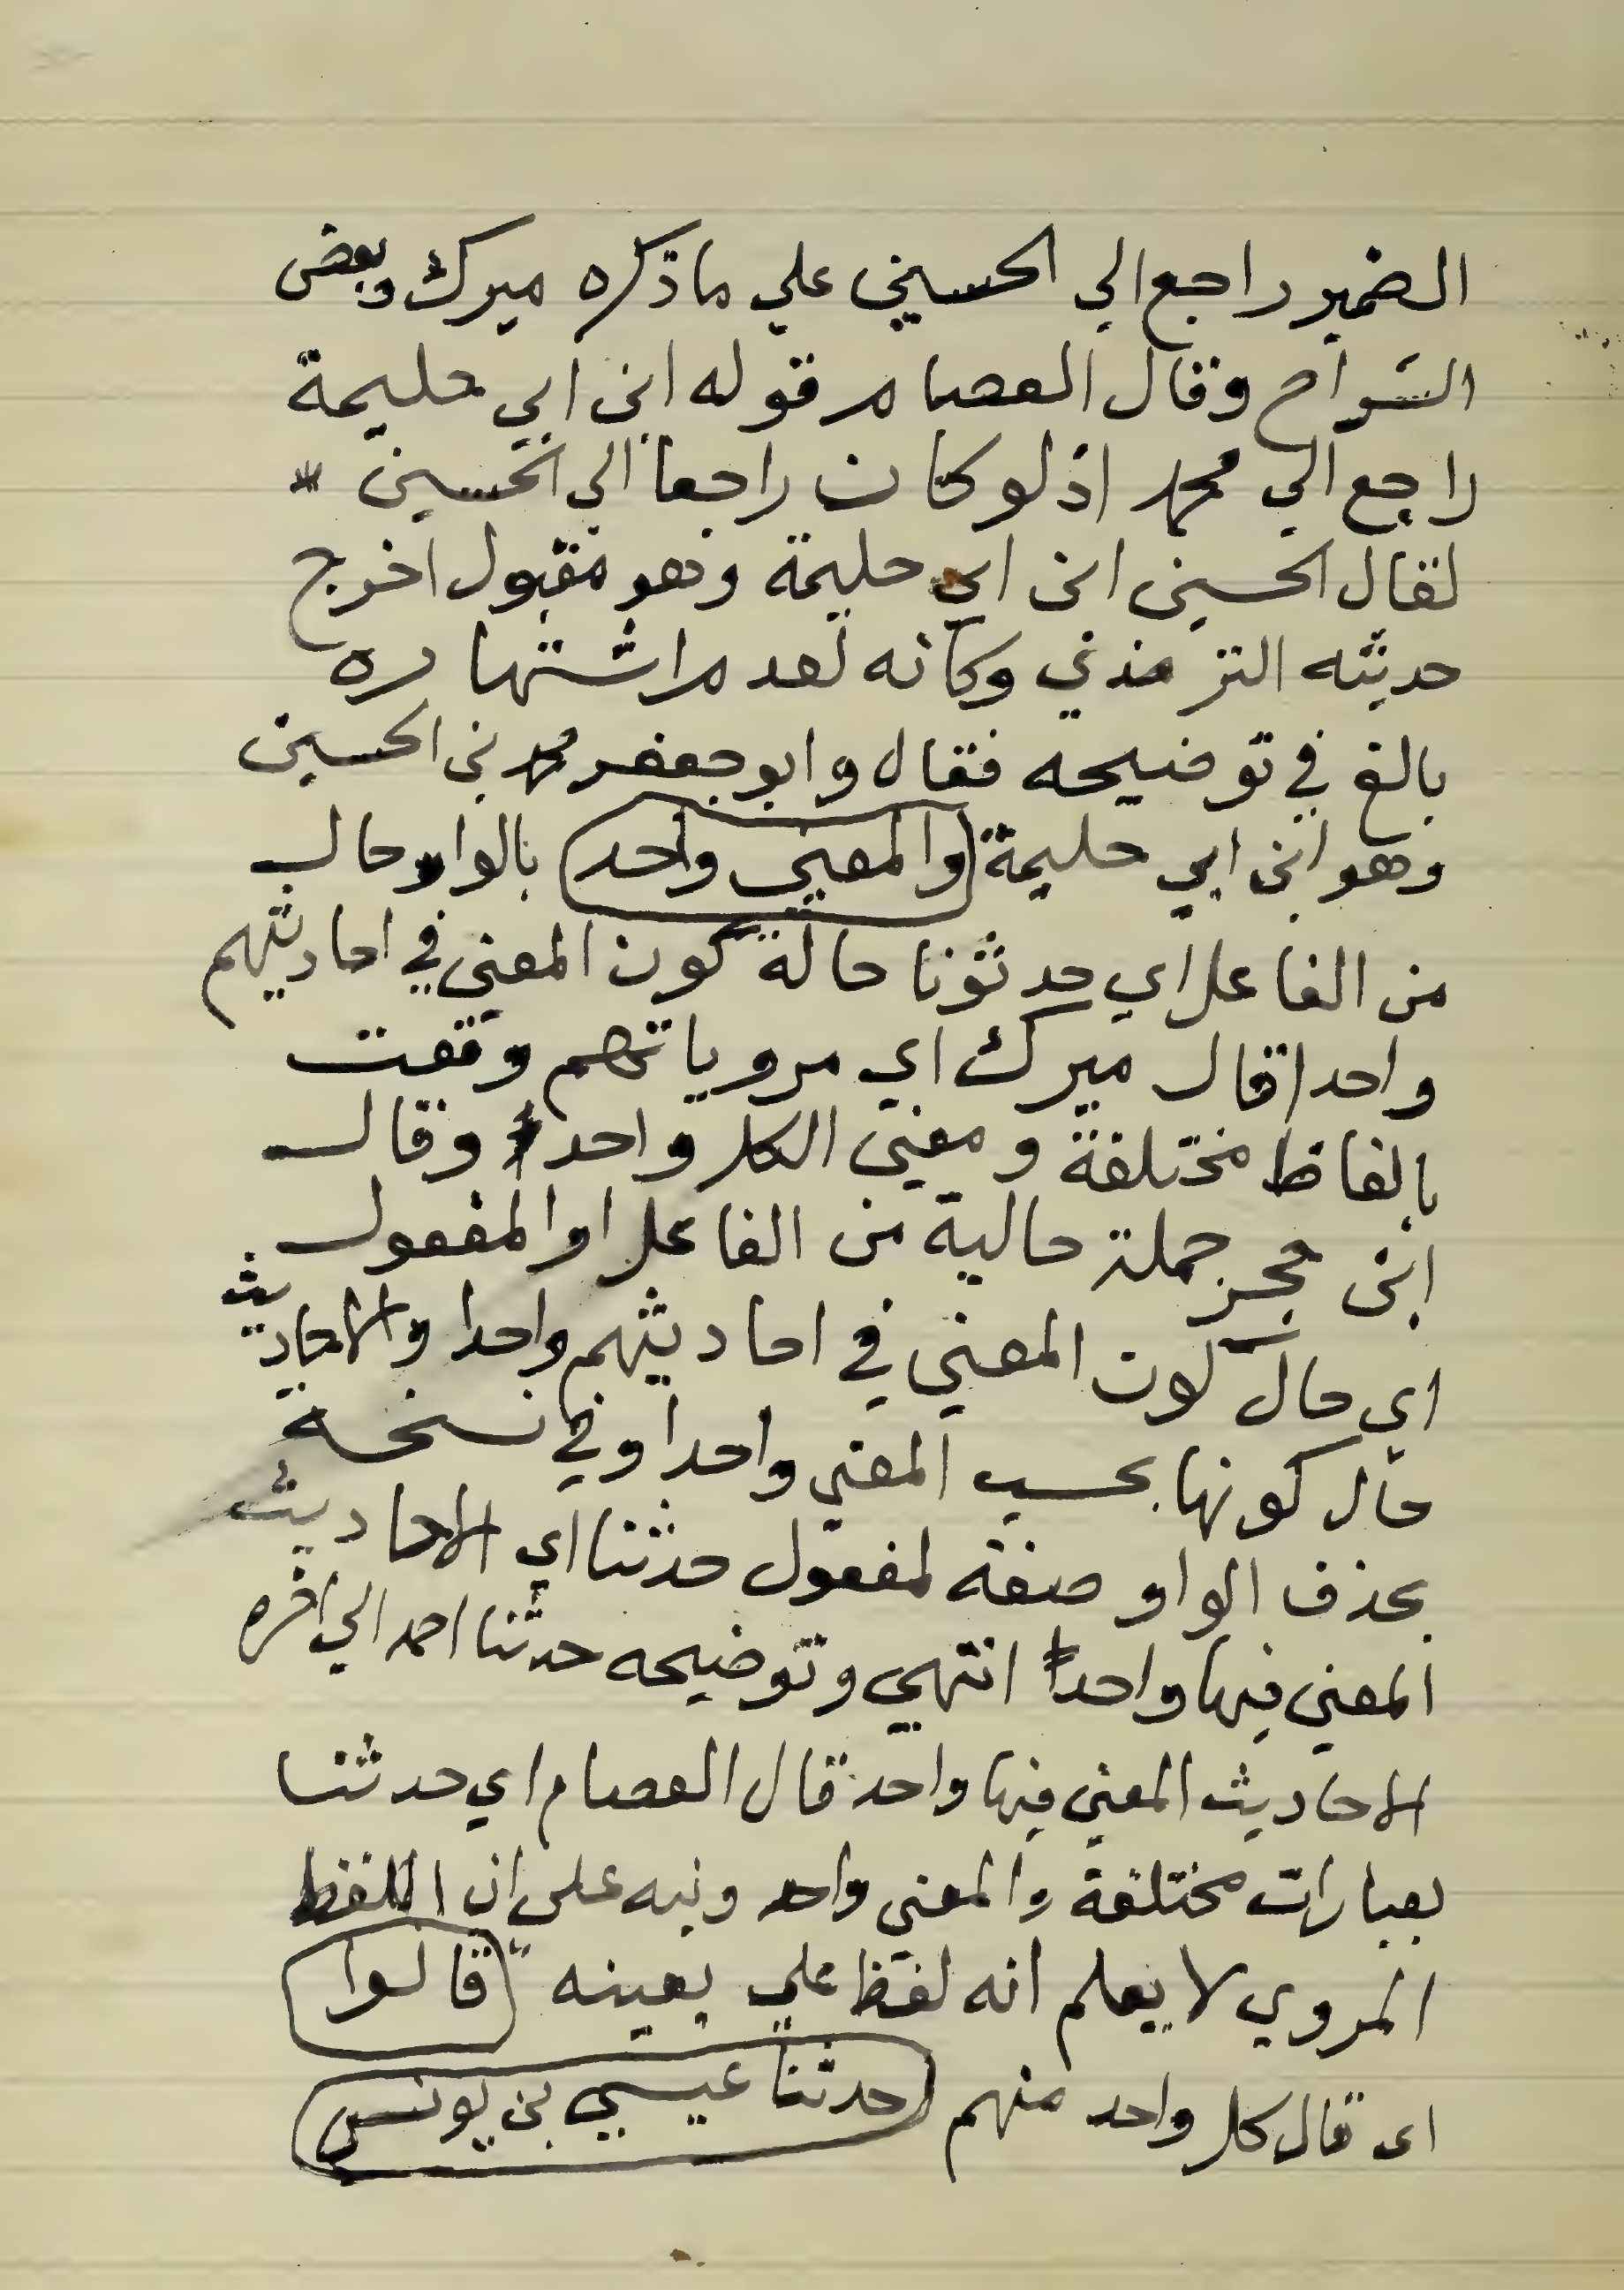 الضمير راجع الي الحسين علي ما ذكره ميرك وبعض
الشراح وقال العصام قوله ابن ابي حليمة
راجع الي محمد اذ لو كان راجعا الي الحسين *
لقال الحسين ابن ابي حليمة وهو مقبول اخرج
حديثه الترمذي وكانه لعدم اشتهاره
بالغ في توضيحه فقال وابو جعفر محمد بن الحسين
وهو ابن ابي حليمة (والمعني واحد) بالواو حال
من الفاعل اي حدثونا حالة كون المعني في احاديثهم
واحدا قال ميرك اي مروياتهم وقعت
بالفاظ مختلفة ومعني الكل واحد وقال
ابن حجر جملة حالية من الفاعل او المفعول
اي حال كون المعني في احاديثهم واحدا والاحاديث
حال كونها بحسب المعني واحدا وفي نسخة
بحذف الواو صفة لمفعول حدثنا اي الاحاديث
المعني فيها واحد انتهي وتوضيحه حدثنا احمد الي اخره
الاحاديث المعني فيها واحد قال العصام اي حدثنا
بعبارات مختلفة والمعني واحد ونبه علي ان اللفظ
المروي لا يعلم انه لفظ علي بعينه (قالوا)
اي قال كل واحد منهم (حدثنا عيسي بن يونس)